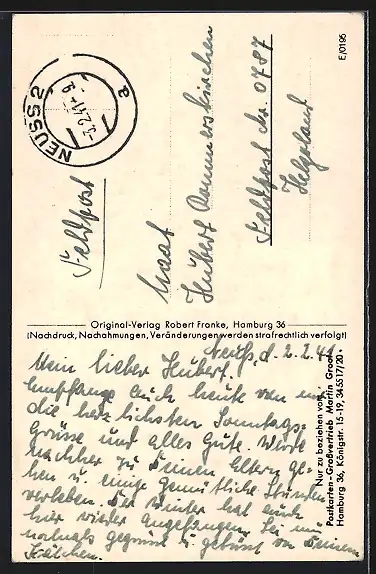 NEUSS 2
-3.2.41-9
a
Feldpost
Maat
Hubert Dommerskirchen
Feldpost Nr. 0787
Helgoland
E/0195
Original-Verlag Robert Franke, Hamburg 36
(Nachdruck, Nachahmungen, Veränderungen werden strafrechtlich verfolgt)
Nur zu beziehen von:
Postkarten-Großvertrieb Martin Groot
Hamburg 36, Königstr. 15-19, 34 55 17/20
Neuß, d. 2.2.41
Mein lieber Hubert.
Empfange auch heute von mir
die herzlichsten Sonntags-
Grüße und alles Gute. Werde
nachher zu Deinen Eltern ge-
hen u. einige gemütliche Stunden
verleben. Der Winter hat auch
hier wieder angefangen. Sei nun
nochmals gegrüßt u. geküßt von Deinem